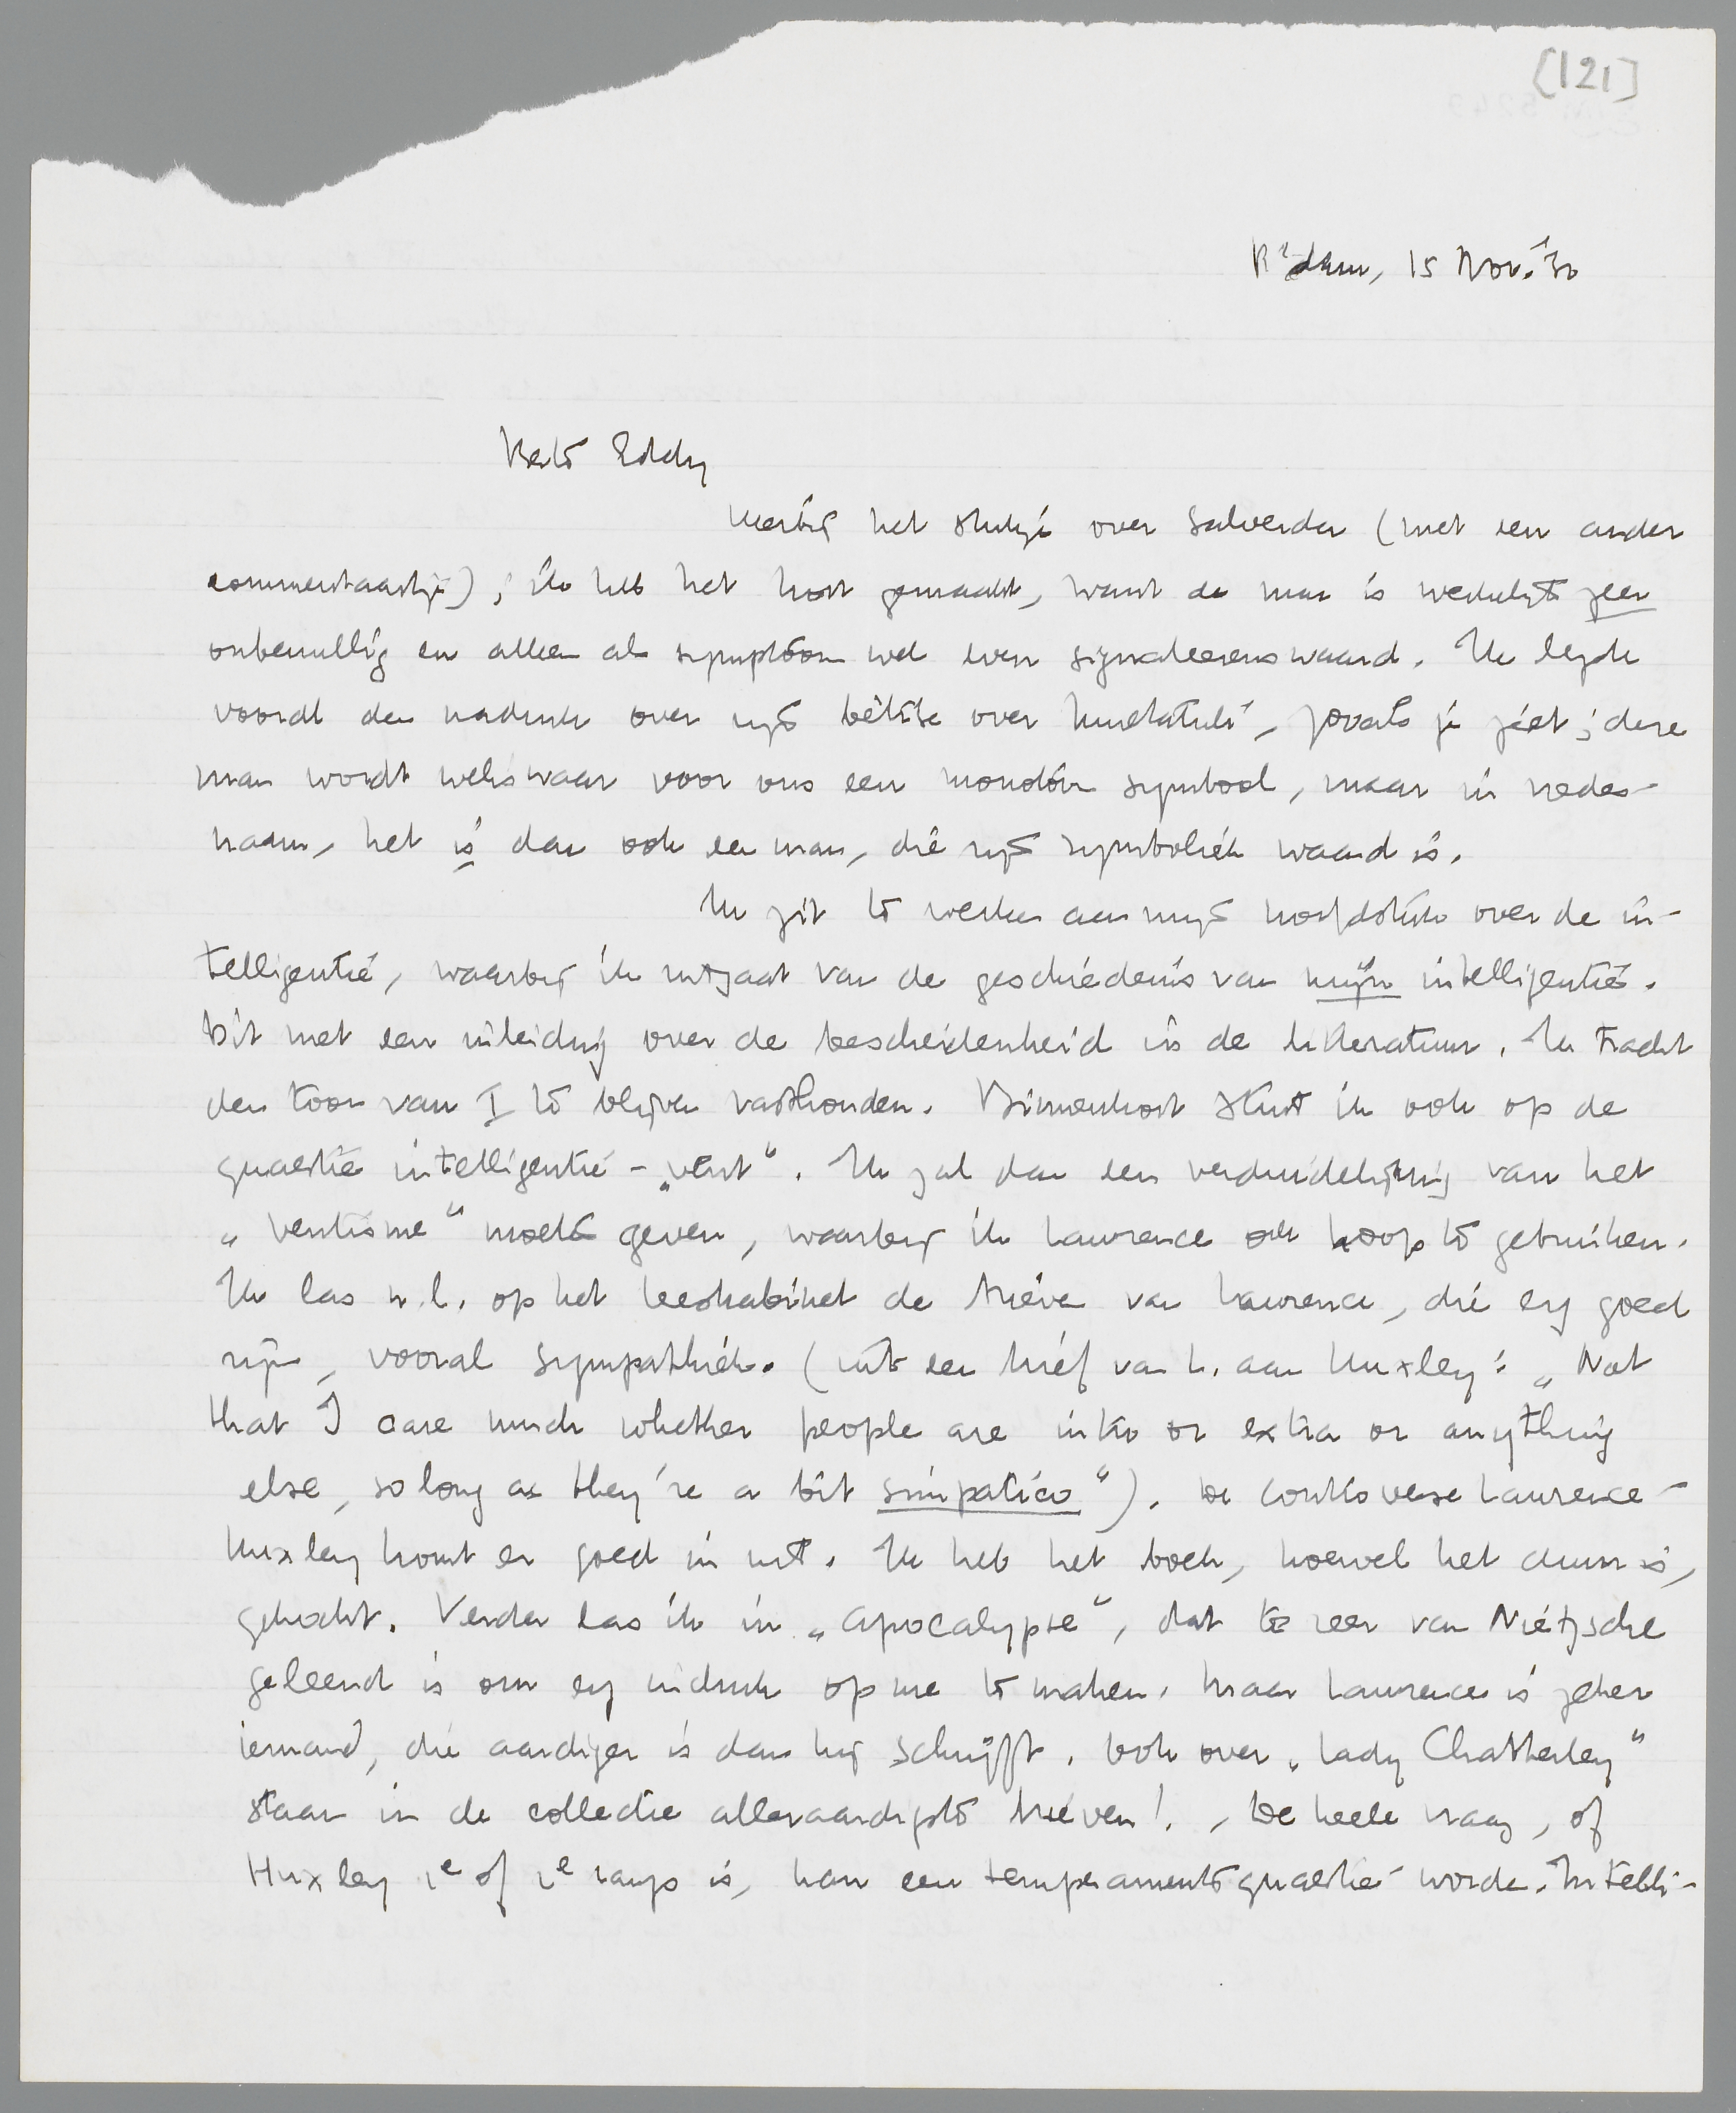 [121]
R'dam, 15 Nov. '32
Beste Eddy
Hierbij het stukje over Salverda (met een ander
commentaartje); ik heb het kort gemaakt, want de man is werkelijk zeer
onbenullig en alleen als symptoom wel even signaleerenswaard. Ik legde
vooral den nadruk over zijn bêtise over Multatuli, zooals je ziet; deze
man wordt weliswaar voor ons een monotoon symbool, maar in vredes-
naam, het is dan ook een man, die zijn symboliek waard is.
Ik zit te werken aan mijn hoofdstuk over de in-
telligentie, waarbij ik uitgaat van de geschiedenis van mijn intelligentie.
Dit met een inleiding over de bescheidenheid in de litteratuur. Ik tracht
den toon van I te blijven vasthouden. Binnenkort stuit ik ook op de
quaestie intelligentie - „vent". Ik zal dan een verduidelijking van het
„ventisme" moeten geven, waarbij ik Lawrence ook hoop te gebruiken.
Ik las n.l. op het leeskabinet de brieven van Lawrence, die erg goed
zijn, vooral sympathiek. (uit een brief van L. aan Huxley: „Not
that I care much whether people are intro or extra or anything
else, so long as they're a bit simpatico"). De controverse Lawrence-
Huxley komt er goed in uit. Ik heb het boek, hoewel het duur is,
gekocht. Verder las ik in „Apocalypse", dat te zeer van Nietzsche
geleend is om erg indruk op me te maken. Maar Lawrence is zeker
iemand, die aardiger is dan hij schrijft. Ook over „Lady Chatterley"
staan in de collectie alleraardigste brieven!, De heele vraag, of
Huxley 1e of 2e rangs is, kan een temperamentsquaestie worden. Intelli-